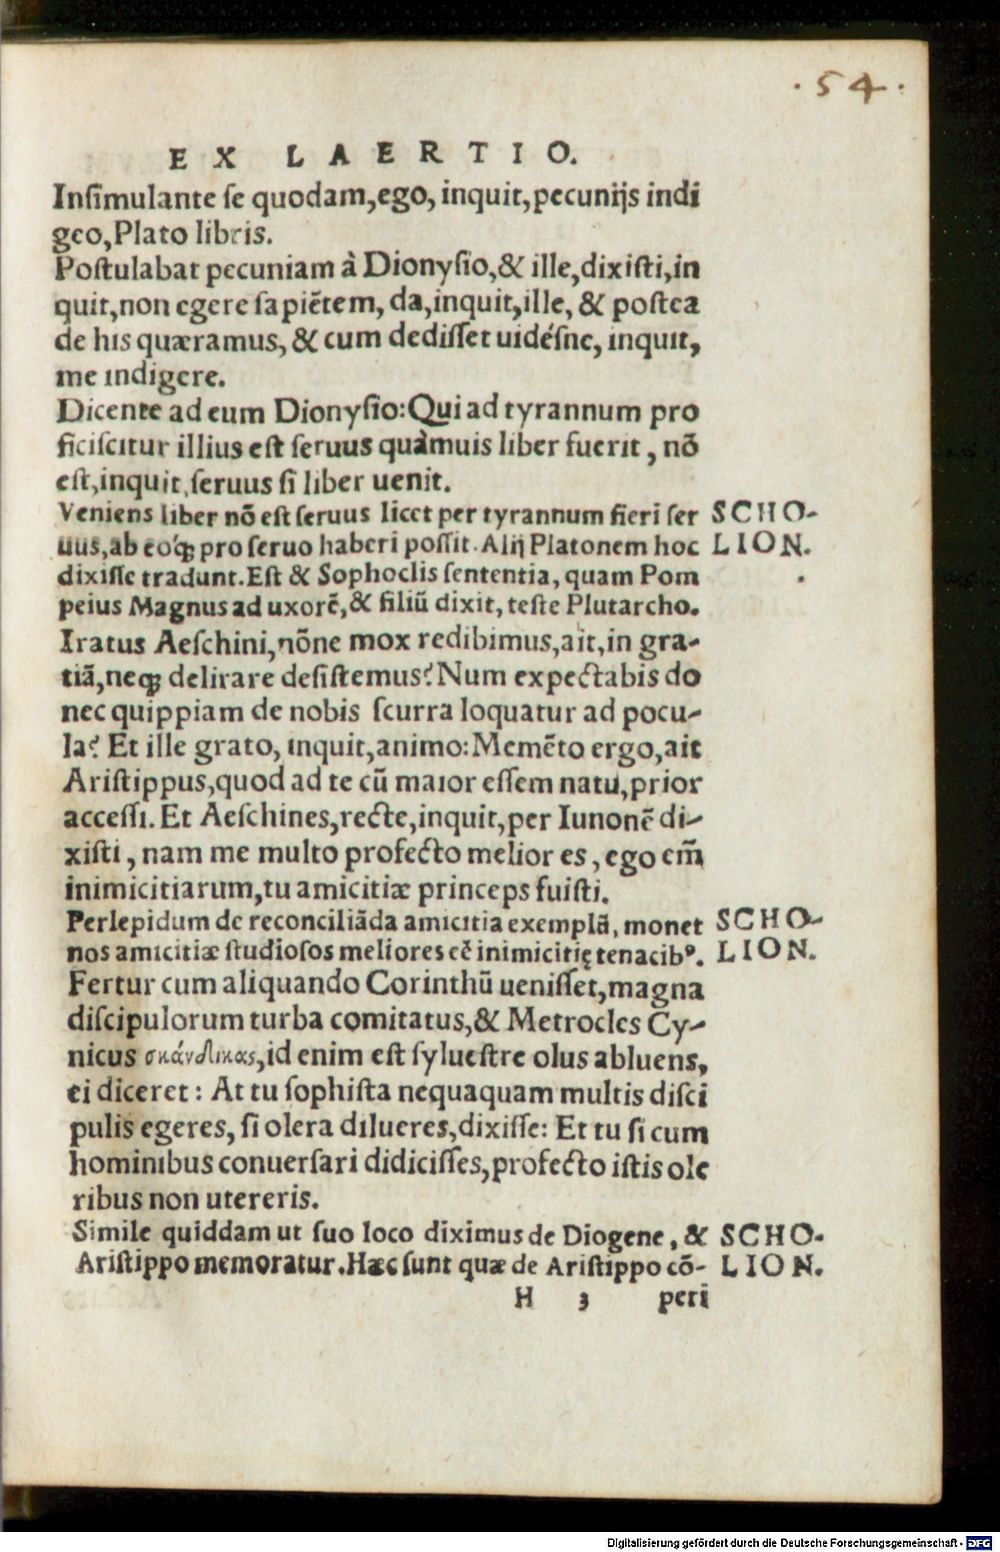 ·54·
EX LAERTIO.
Inſimulante ſe quodam,ego, inquit,pecunijs indi
geo,Plato libris.
Poſtulabat pecuniam à Dionyſio,& ille,dixiſti,in
quit,non egere ſapiẽtem, da,inquit,ille, & poſtea
de his quæramus, & cum dediſſet uidéſne, inquit,
me indigere.
Dicente ad eum Dionyſio:Qui ad tyrannum pro
ficiſcitur illius eſt ſeruus quàmuis liber fuerit, nõ
eſt,inquit,ſeruus ſi liber uenit.
Veniens liber nõ eſt ſeruus licet per tyrannum fieri ſer SCHO-
uus,ab eoq́ꝫ pro ſeruo haberi poſſit. Alij Platonem hoc LION.
dixiſſe tradunt. Eſt & Sophoclis ſententia, quam Pom
peius Magnus ad uxorẽ, & filiũ dixit, teſte Plutarcho.
Iratus Aeſchini,nõne mox redibimus,ait,in gra-
tiã,neqꝫ delirare deſiſtemus? Num expectabis do
nec quippiam de nobis ſcurra loquatur ad pocu-
la? Et ille grato, inquit,animo: Memẽto ergo,ait
Ariſtippus,quod ad te cũ maior eſſem natu,prior
acceſſi. Et Aeſchines,recte,inquit,per Iunonẽ di-
xiſti, nam me multo profecto melior es, ego em̃
inimicitiarum,tu amicitiæ princeps fuiſti.
Perlepidum de reconciliãda amicitia exemplũ, monet SCHO-
nos amicitiæ ſtudioſos meliores eẽ inimicitię tenacibꝰ. LION.
Fertur cum aliquando Corinthũ ueniſſet,magna
diſcipulorum turba comitatus,& Metrocles Cy-
nicus σκάνδικας,id enim eſt ſylueſtre olus abluens,
ei diceret: At tu ſophiſta nequaquam multis diſci
pulis egeres, ſi olera dilueres,dixiſſe: Et tu ſi cum
hominibus conuerſari didiciſſes,profecto iſtis ole
ribus non utereris.
Simile quiddam ut ſuo loco diximus de Diogene, & SCHO-
Ariſtippo memoratur. Hæc ſunt quæ de Ariſtippo cõ- LION.
H 3 peri
Digitalisierung gefördert durch die Deutsche Forschungsgemeinschaft - DFG